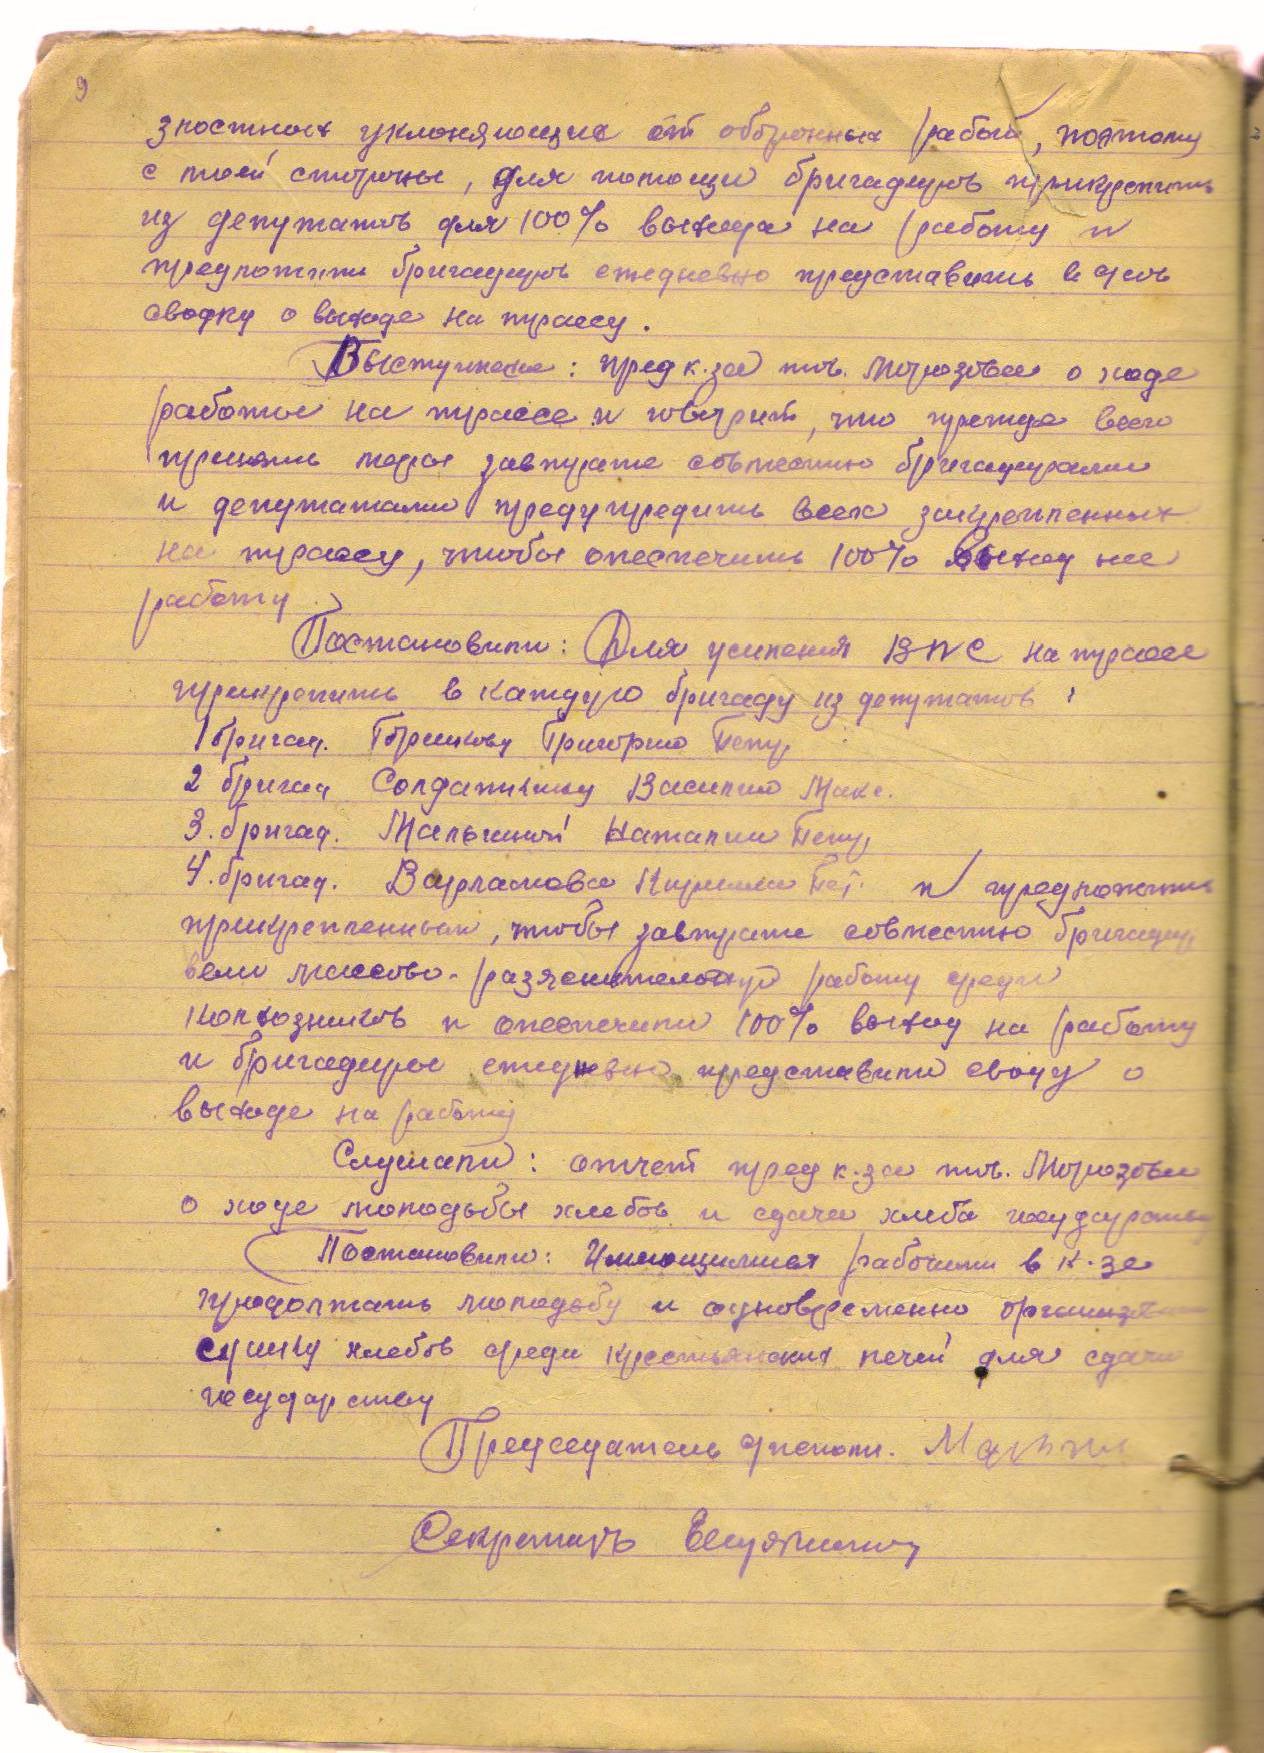 9
злостных уклоняющихся от оборонных работ, поэтому
с моей стороны, для помощи бригадиров прикрепить
из депутатов для 100% выхода на работу и
предложить бригадиров ежедневно представить в
сводку о выходе на трассу.
Выступила: пред к-за тов. Морозова о ходе
работы на трассе и говорит, что прежде всего
принять меры завтра же совместно бригадирами
и депутатами предупредить всех закрепленных
на трассу, чтобы опеспечить 100% выход на
работу.
Постановили: Для усиления ВПС на трассе
прикрепить в каждую бригаду из депутатов:
1 бригад. Горшкову Григорию
2 бригад Солдаткину Василию Макс.
3. бригад. Мальгиной Наталии
4. бригад. Варламова Кирилла Пет. и предложить
прикрепленным, чтобы завтра же совместно бригадир
вели массово-разяснительную работу среди
колхозников и опеспечили 100% выход на работу
и бригадиры ежедневно представили сводку о
выходе на работу
Слушали: отчет пред к-за тов. Морозовы
о ходе молодьбы хлебов и сдачи хлеба государству
Постановили: Имеющимися рабочими в к-зе
продолжать молодьбу и одновременно организовать
сушку хлебов среди крестьянских печей для сдачи
государству
Председатель
Секретарь